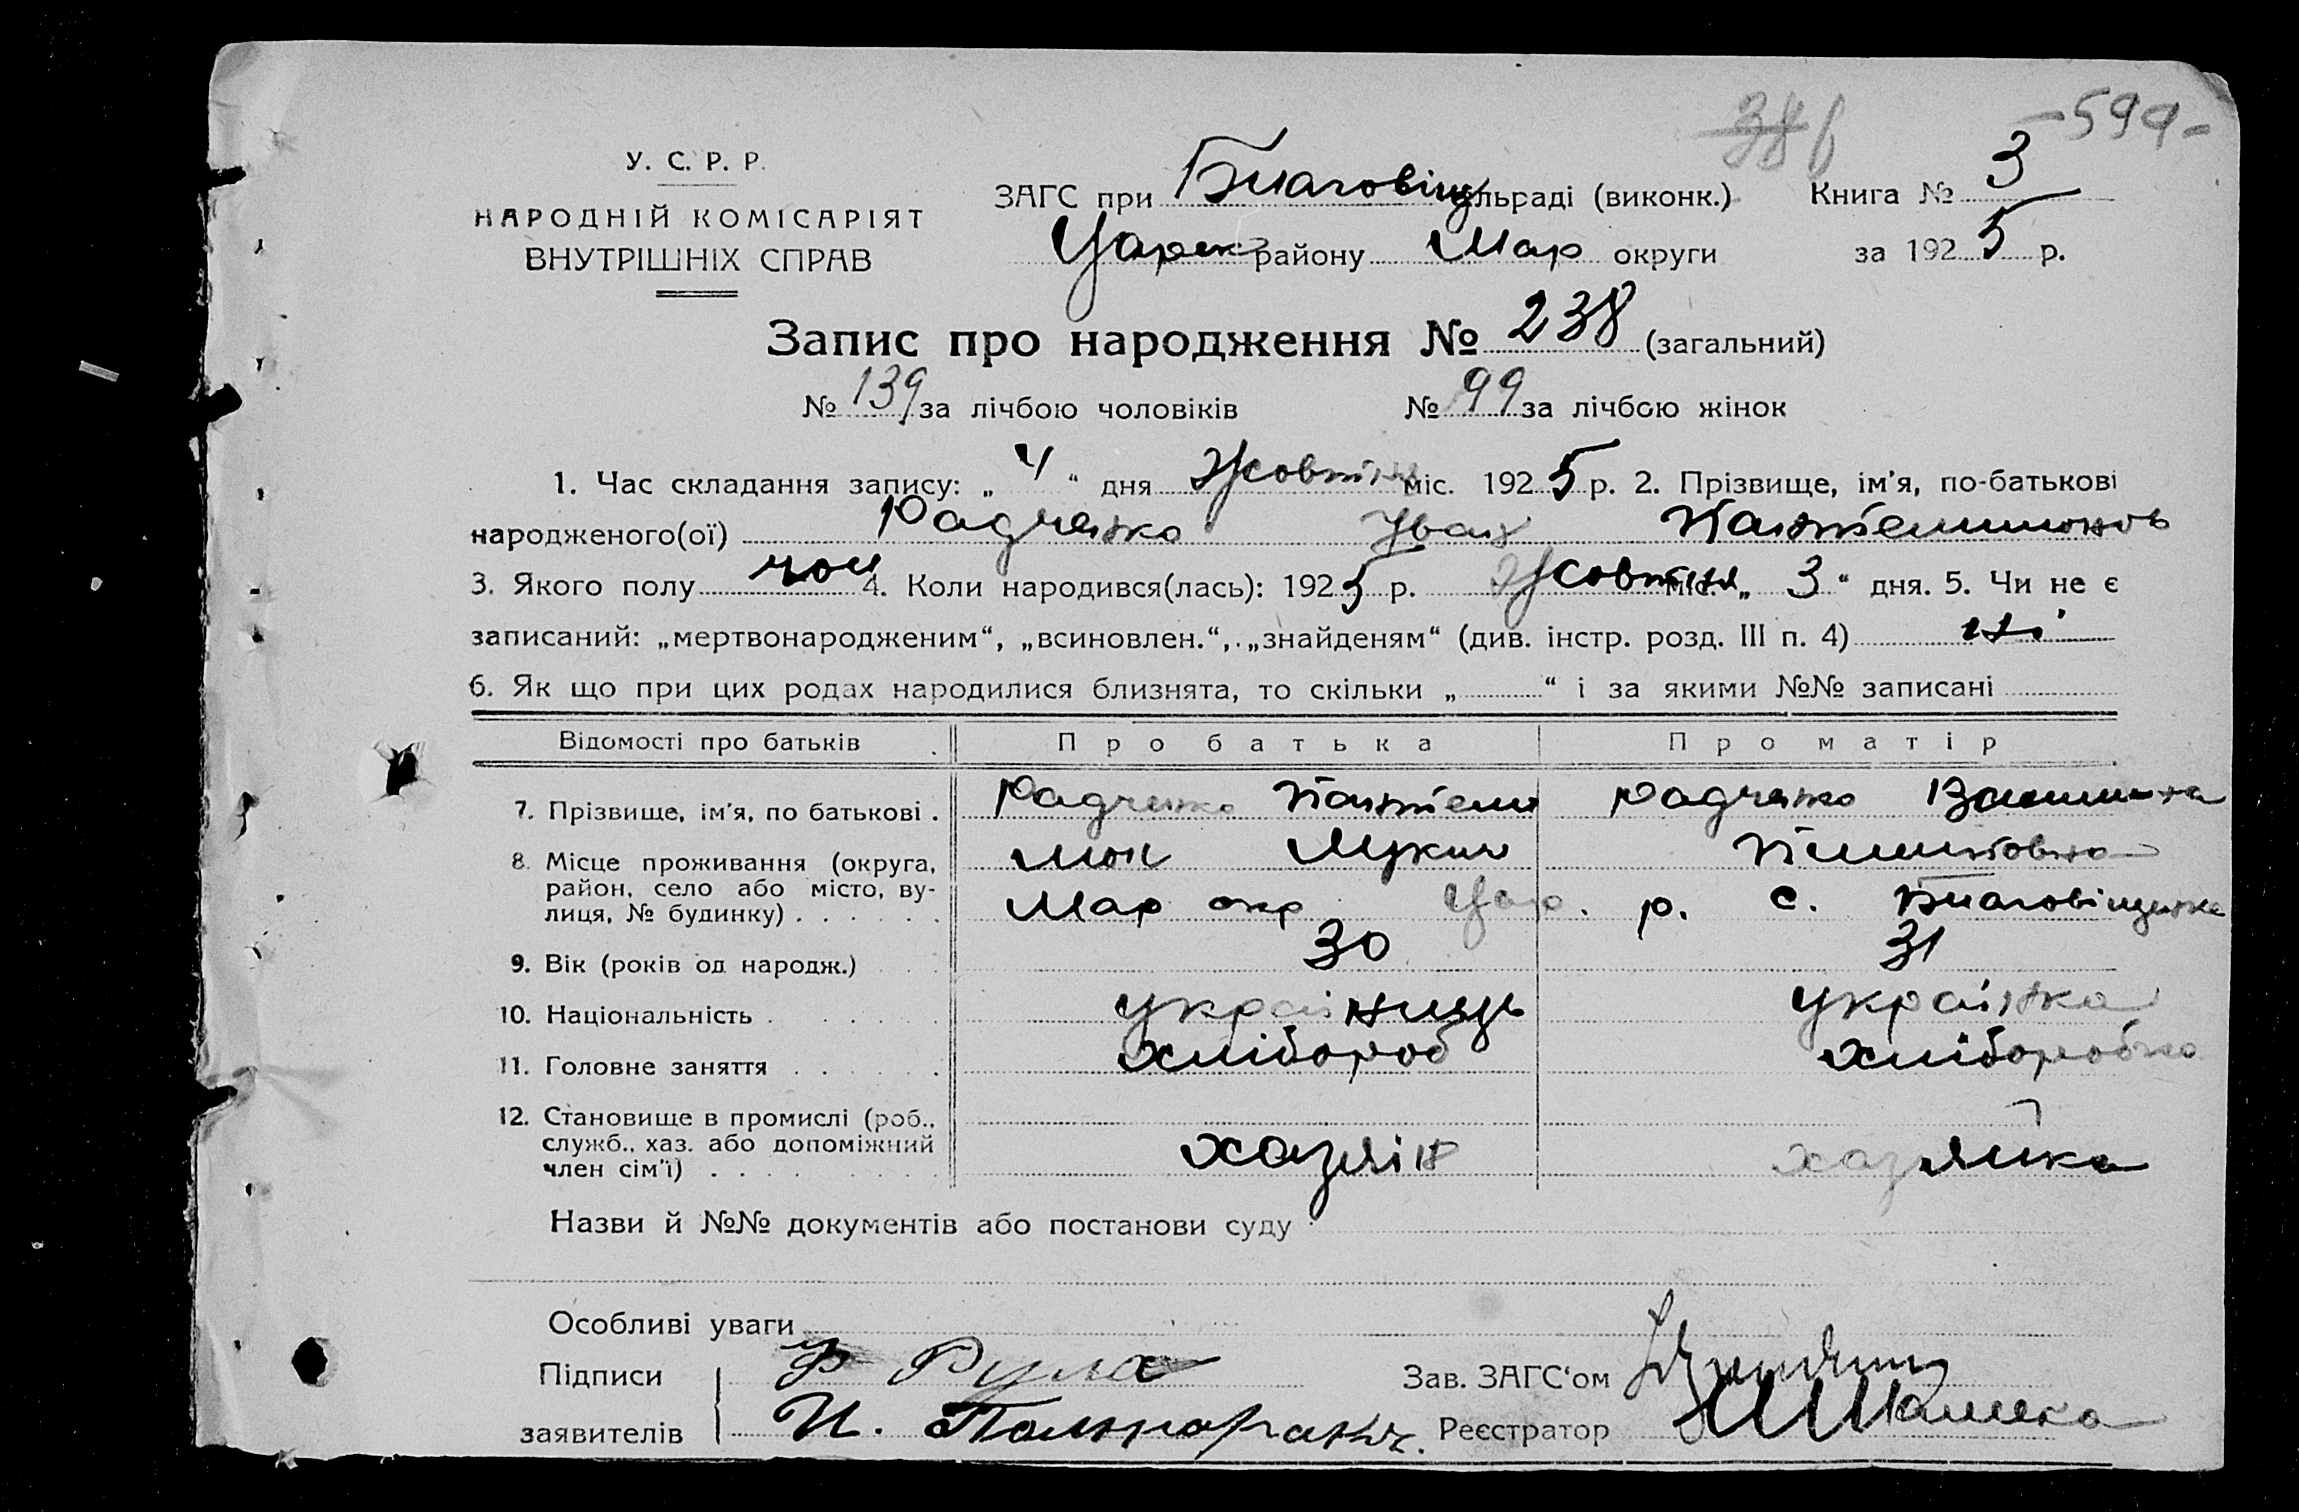 38 -599-
У. С. Р. Р.
НАРОДНІЙ КОМІСАРІЯТ
ВНУТРІШНІХ СПРАВ
ЗАГС при Благовіщ сільраді (виконк.) Книга № 3
Царек району Мар округи за 1925 р.
Запис про народження № 238 (загальний)
№ 139 за лічбою чоловіків № 99 за лічбою жінок
1. Час складання запису: „ 4 “ дня Жовтня міс. 1925 р. 2. Прізвище, ім'я, по-батькові
народженого(ої) Радченко Іван Пантелимонов
3. Якого полу чол 4. Коли народився(лась): 1925 р. Жовтня міс. „ 3 “ дня. 5. Чи не є
записаний: „мертвонародженим“, „всиновлен.“, „знайденям“ (див. інстр. розд. III п. 4) ні
6. Як що при цих родах народилися близнята, то скільки „ “ і за якими №№ записані
Відомості про батьків Про батька Про матір
7. Прізвище, ім'я, по батькові . Радченко Пантели Радченко
8. Місце проживання (округа, район, село або місто, вулиця, № будинку) . . . . . . мон Лукич
Мар окр Цар. р. с. Благовіщенка
9. Вік (років од народж.) 30 31
10. Національність . . . . . українець українка
11. Головне заняття . . . . . хлібороб хліборобка
12. Становище в промислі (роб., служб., хаз. або допоміжний член сім'ї) . . . . . . хазяїн хазяйка
Назви й №№ документів або постанови суду
Особливі уваги
Підписи Зав. ЗАГС'ом
заявителів И. Реєстратор